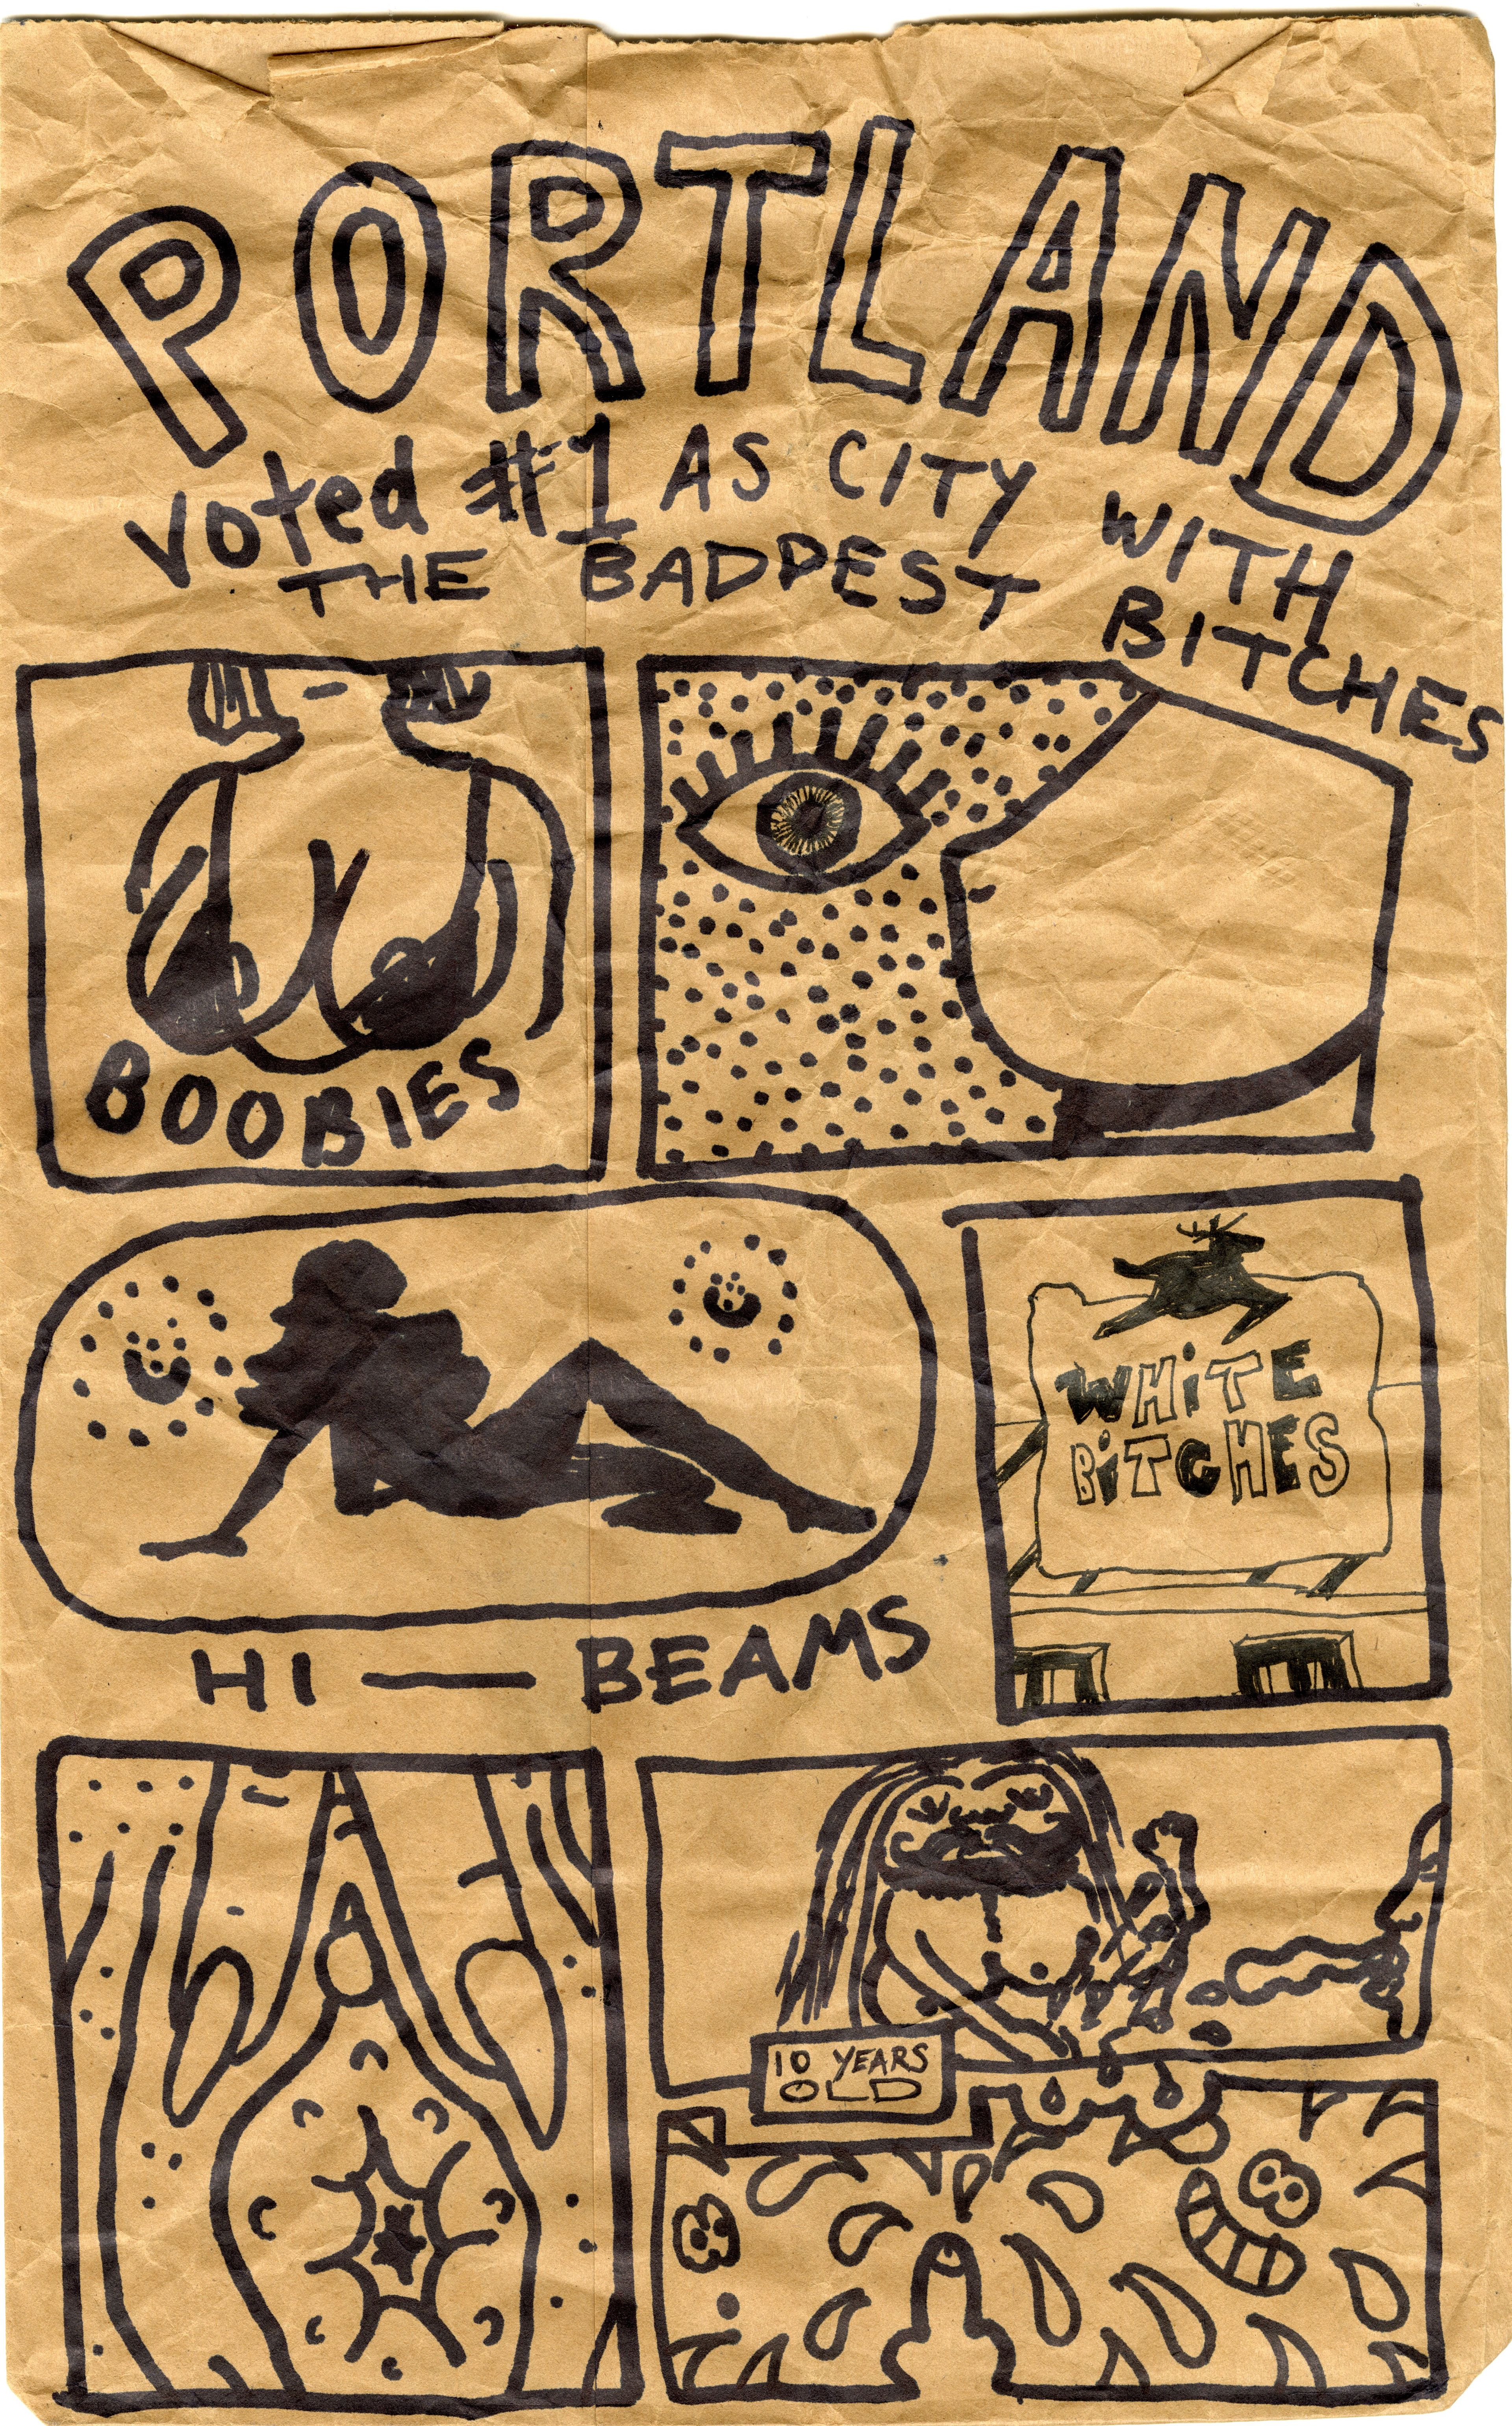 PORTLAND
Voted #1 AS CITY WITH
THE BADDEST BITCHES
BOOBIES
HI — BEAMS
WHiTE
BiTCHES
10 YEARS
OLD